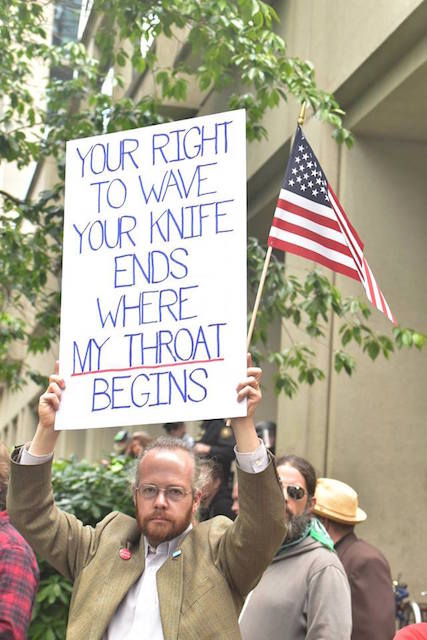 YOUR RIGHT
TO WAVE
YOUR KNIFE
ENDS
WHERE
MY THROAT
BEGINS